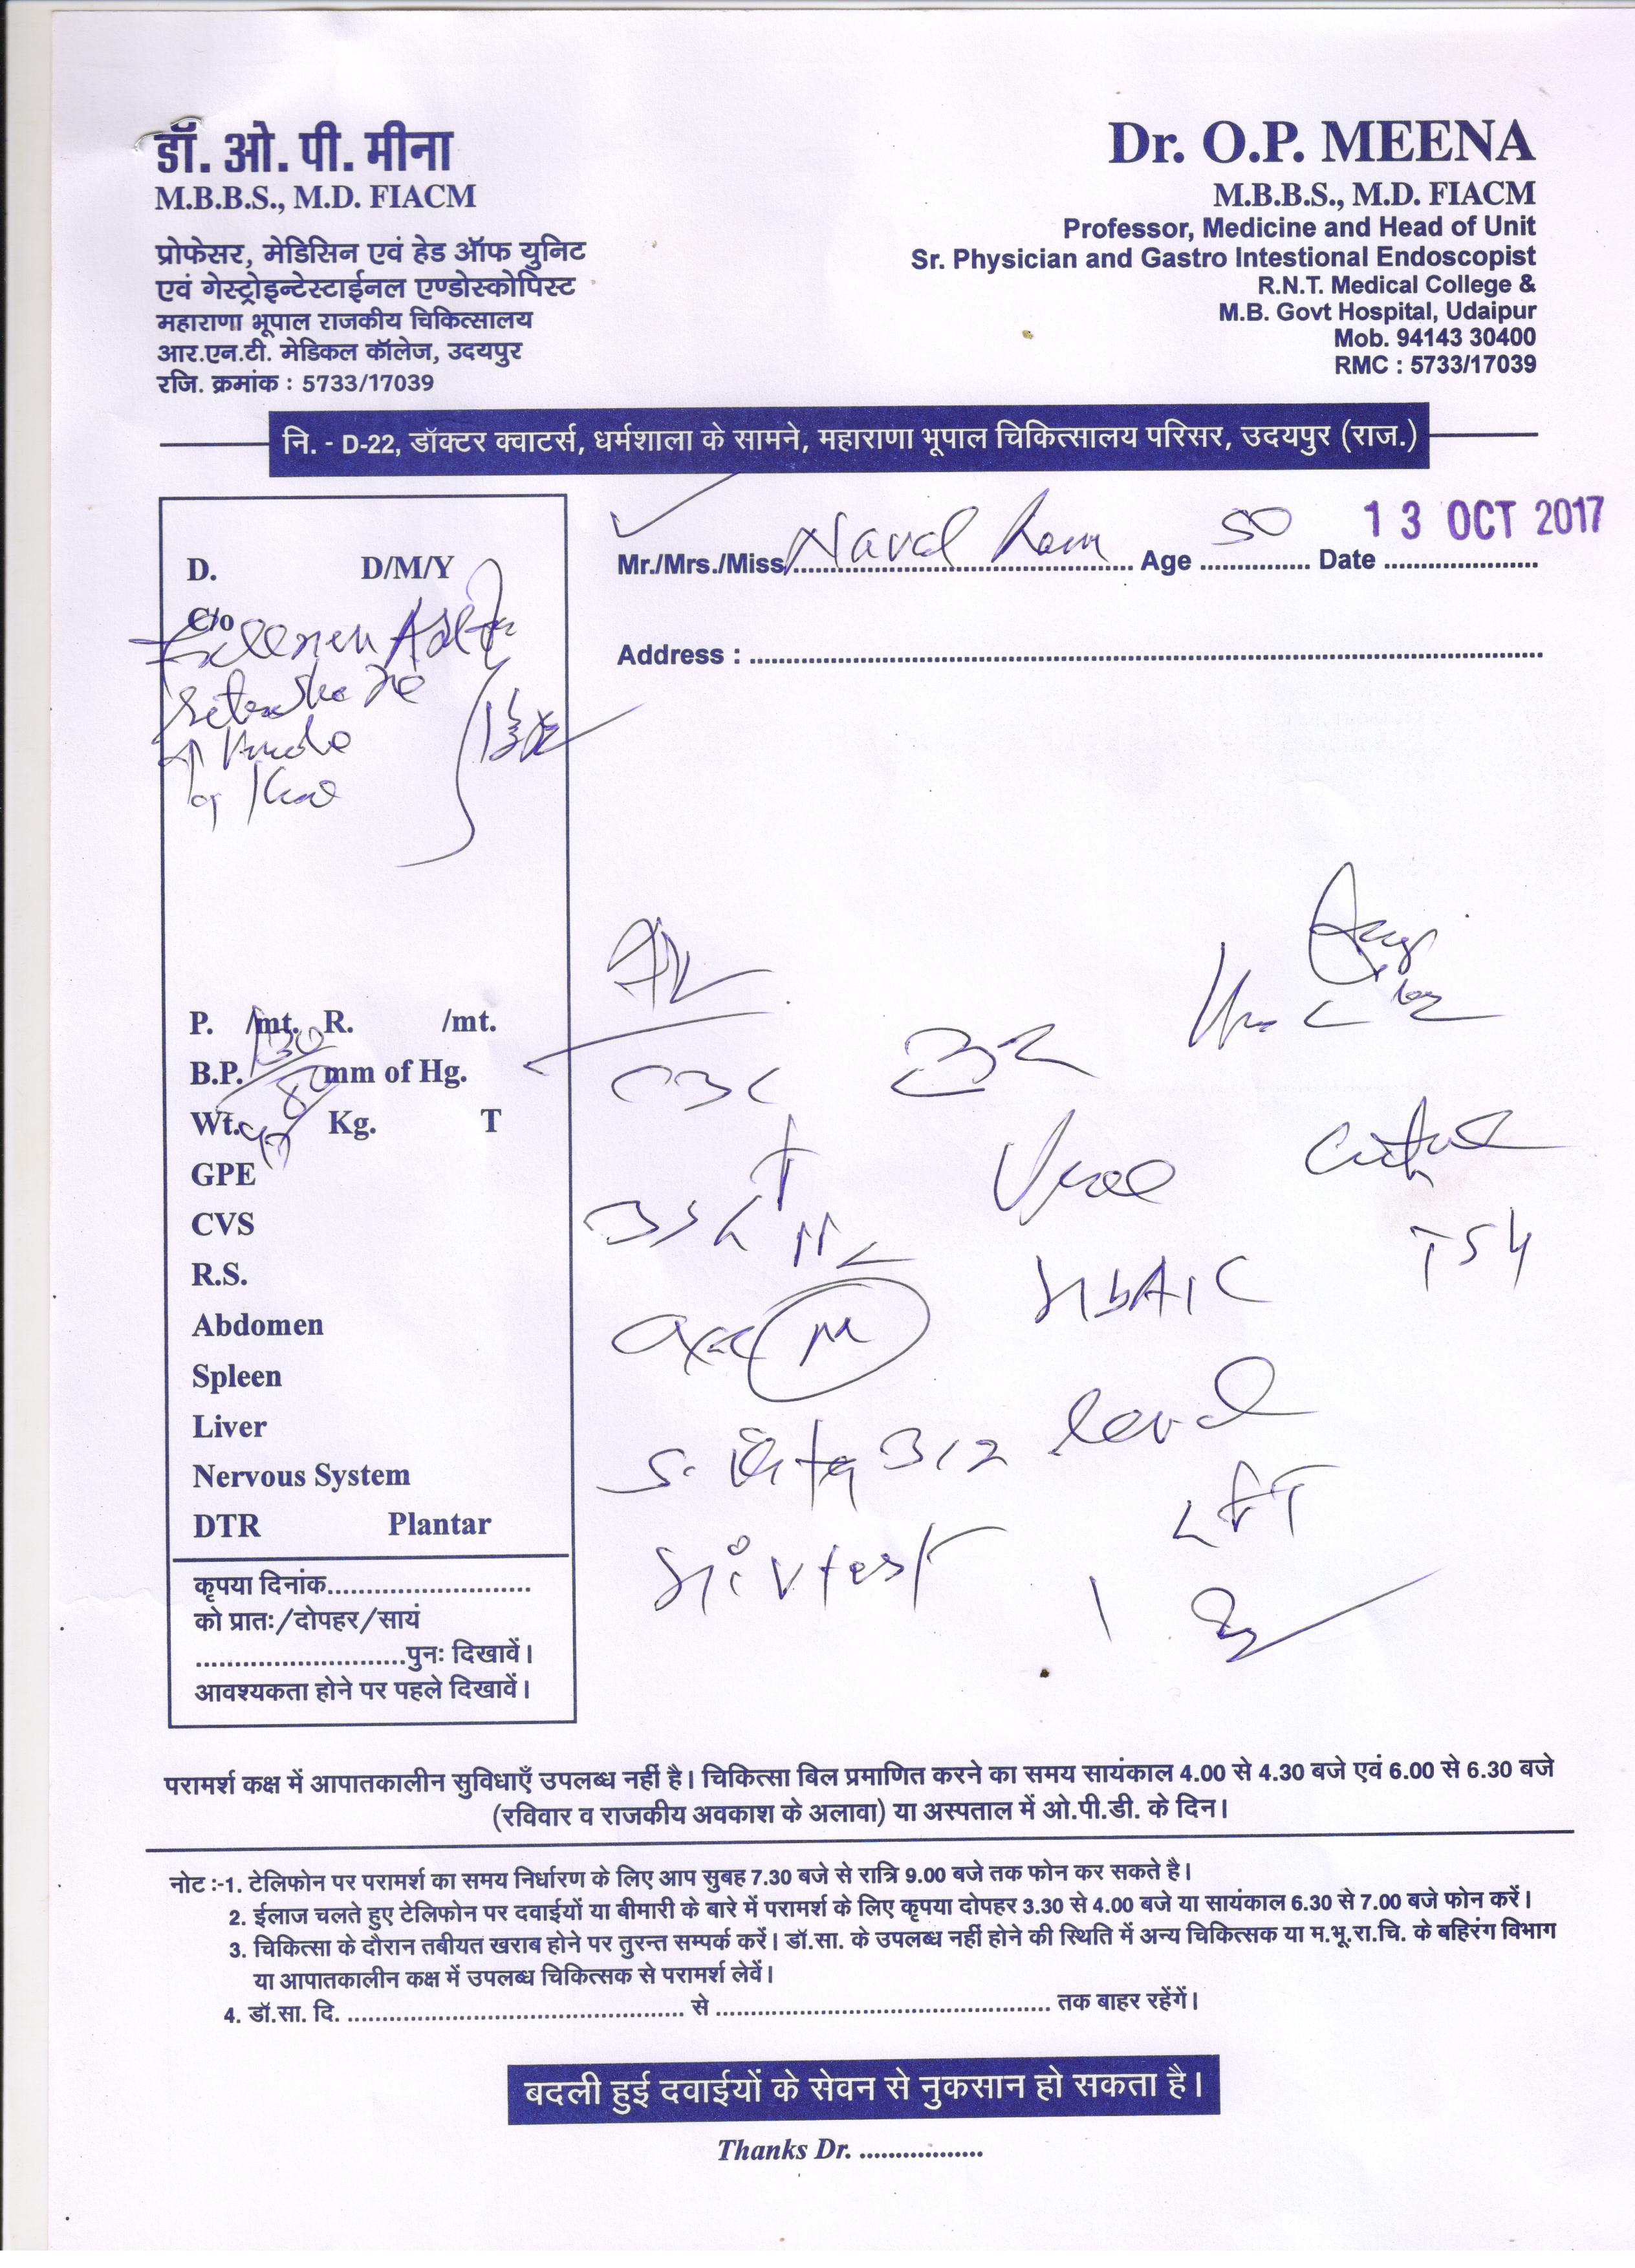 डॉ. ओ. पी. मीना
M.B.B.S., M.D. FIACM
प्रोफेसर, मेडिसिन एवं हेड ऑफ युनिट
एवं गेस्ट्रोइन्टेस्टाईनल एण्डोस्कोपिस्ट
महाराणा भूपाल राजकीय चिकित्सालय
आर.एन.टी. मेडिकल कॉलेज, उदयपुर
रजि. क्रमांक : 5733/17039
Dr. O.P. MEENA
M.B.B.S., M.D. FIACM
Professor, Medicine and Head of Unit
Sr. Physician and Gastro Intestional Endoscopist
R.N.T. Medical College &
M.B. Govt Hospital, Udaipur
Mob. 94143 30400
RMC : 5733/17039
नि. - D-22, डॉक्टर क्वाटर्स, धर्मशाला के सामने, महाराणा भूपाल चिकित्सालय परिसर, उदयपुर (राज.)
Mr./Mrs./Miss Naval Ram Age 50 Date 13 OCT 2017
Address :
D. D/M/Y
C/o
P. /mt. R. /mt.
B.P. 130/80 mm of Hg.
Wt. Kg. T
GPE
CVS
R.S.
Abdomen
Spleen
Liver
Nervous System
DTR Plantar
कृपया दिनांक..........................
को प्रातः/दोपहर/सायं
...........................पुनः दिखावें।
आवश्यकता होने पर पहले दिखावें।
CBC
HbA1C TSH
S. Vita B12 level
LFT
HiV test
परामर्श कक्ष में आपातकालीन सुविधाएँ उपलब्ध नहीं है। चिकित्सा बिल प्रमाणित करने का समय सायंकाल 4.00 से 4.30 बजे एवं 6.00 से 6.30 बजे
(रविवार व राजकीय अवकाश के अलावा) या अस्पताल में ओ.पी.डी. के दिन।
नोट :-1. टेलिफोन पर परामर्श का समय निर्धारण के लिए आप सुबह 7.30 बजे से रात्रि 9.00 बजे तक फोन कर सकते है।
2. ईलाज चलते हुए टेलिफोन पर दवाईयों या बीमारी के बारे में परामर्श के लिए कृपया दोपहर 3.30 से 4.00 बजे या सायंकाल 6.30 से 7.00 बजे फोन करें।
3. चिकित्सा के दौरान तबीयत खराब होने पर तुरन्त सम्पर्क करें। डॉ.सा. के उपलब्ध नहीं होने की स्थिति में अन्य चिकित्सक या म.भू.रा.चि. के बहिरंग विभाग
या आपातकालीन कक्ष में उपलब्ध चिकित्सक से परामर्श लेवें।
4. डॉ.सा. दि. ............................................ से ............................................ तक बाहर रहेंगें।
बदली हुई दवाईयों के सेवन से नुकसान हो सकता है।
Thanks Dr. .................